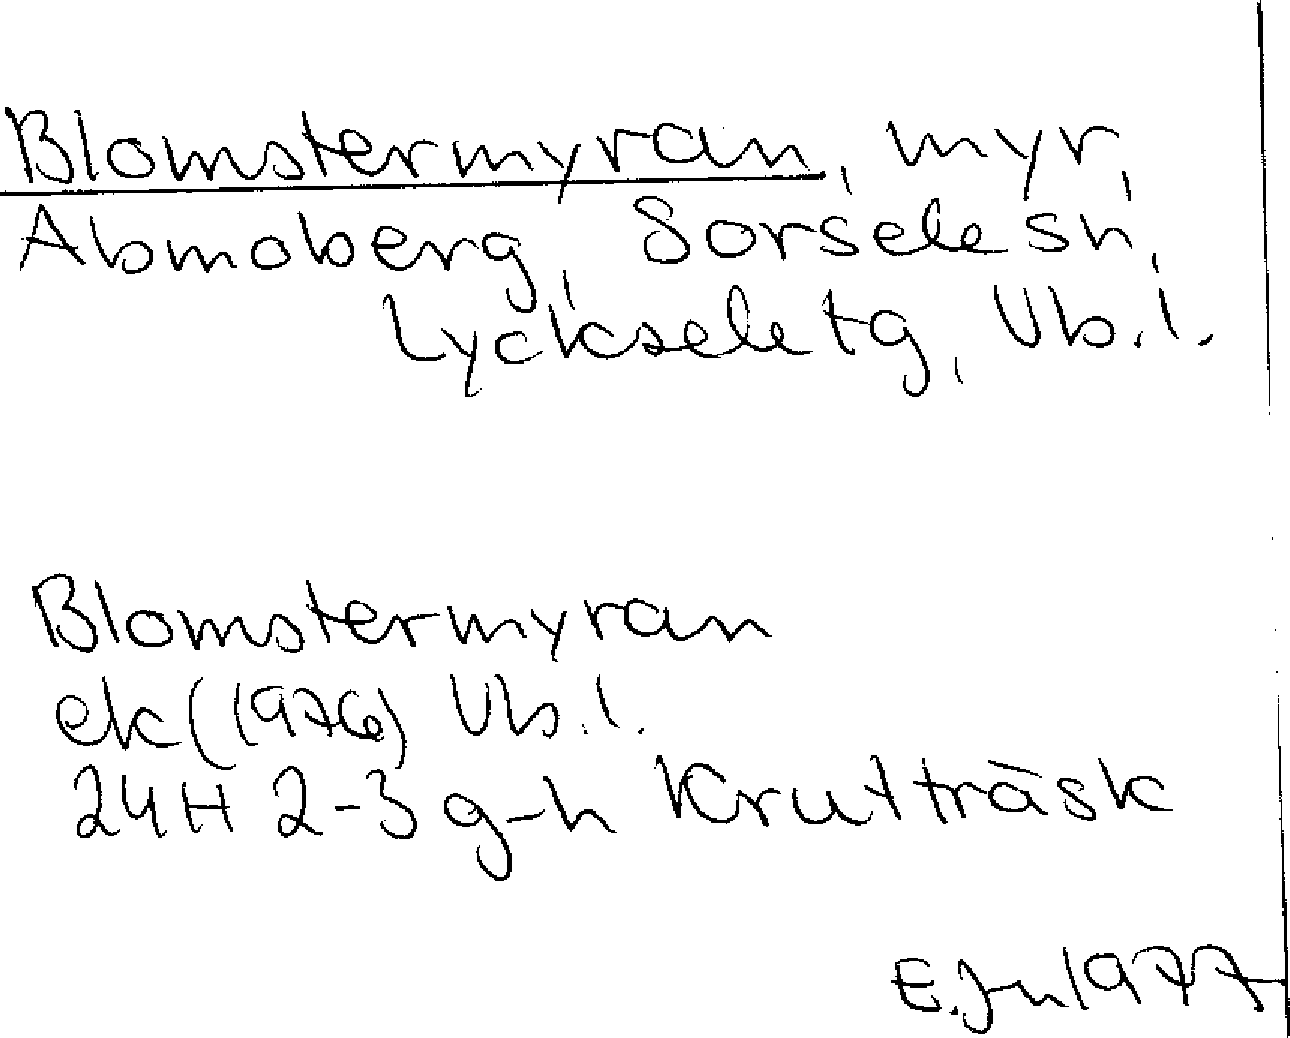 Blomstermyran, myr,
Abmoberg, Sorsele sn,
Lycksele tg, Vb.l.
Blomstermyran
ek (1976) Vb.l.
24H 2-3 g-h Krutträsk
E. Jn 1977